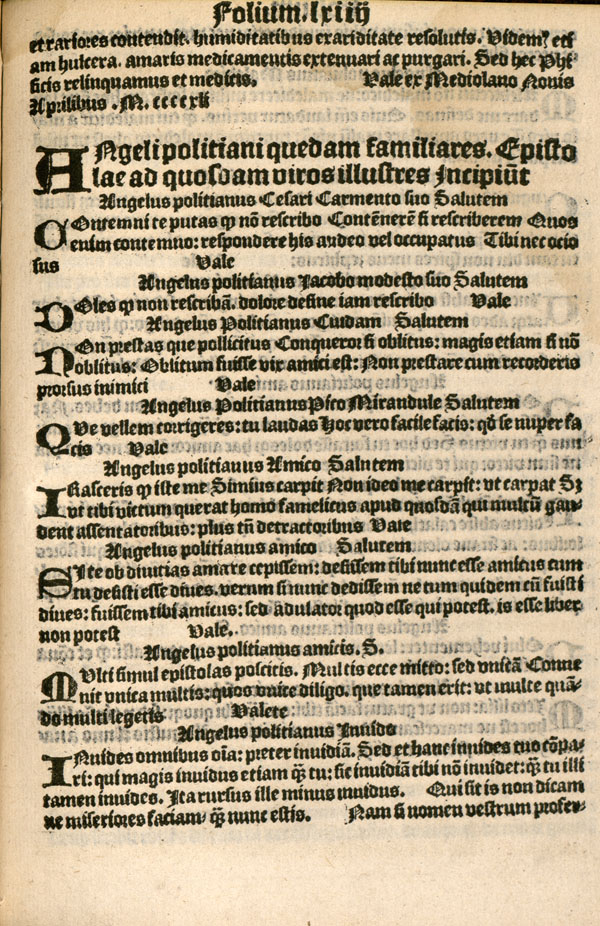 Folium. lxiiij
et rariores contendit. humiditatibus exariditate resolutis. Videmꝰ eti
am hulcera. amaris medicamentis extenuari ac purgari. Sed hec Phi
sicis relinquamus et medicis. Vale ex Mediolano Nonis
Aprilibus . M. ccccxli
ANgeli politiani quedam familiares. Episto
lae ad quosdam viros illustres Incipiūt
Angelus politianus Cesari Carmento suo Salutem
COntemni te putas ꝙ nō rescribo Contēnerē si rescriberem Quos
enim contemno: respondere his audeo vel occupatus Tibi nec ocio
sus Vale
Angelus politianus Jacobo modesto suo Salutem
DOles ꝙ non rescribā. dolore desine iam rescribo Vale
Angelus Politianus Cuidam Salutem
NOn prestas que pollicitus Conqueror si oblitus: magis etiam si nō
oblitus: Oblitum fuisse vix amici est: Non prestare cum recorderis
prorsus inimici Vale
Angelus Politianus Pico Mirandule Salutem
QVe vellem corrigeres: tu laudas Hoc vero facile facis: qō se nuper fa
cis Vale
Angelus politianus Amico Salutem
IRasceris ꝙ iste me Simius carpit Non ideo me carpit: vt carpat Sꝫ
vt tibi victum querat homo famelicus apud quosdā qui multū gau⸗
dent assentatoribus: plus tn̄ detractoribus Vale
Angelus politianus amico Salutem
SI te ob diuitias amare cepissem: desissem tibi nunc esse amicus cum
tu desisti esse diues. verum si nunc dedissem ne tum quidem cū fuisti
diues: fuissem tibi amicus: sed adulator quod esse qui potest. is esse liber
non potest Vale.
Angelus politianus amicis. S.
MVlti simul epistolas poscitis. Multis ecce mitto: sed vnicā Conue
nit vnica multis: quos vnice diligo. que tamen erit: vt multe quā⸗
do multi legetis Valete
Angelus politianus Inuido
INuides omnibus oīa: preter inuidiā. Sed et hanc inuides tuo cōpa⸗
ri: qui magis inuidus etiam qꝫ̄ tu: sic inuidiā tibi nō inuidet: qꝫ̄ tu illi
tamen inuides. Ita rursus ille minus inuidus. Qui sit is non dicam
ne miseriores faciam qꝫ̄ nunc estis. Nam si nomen vestrum profer⸗